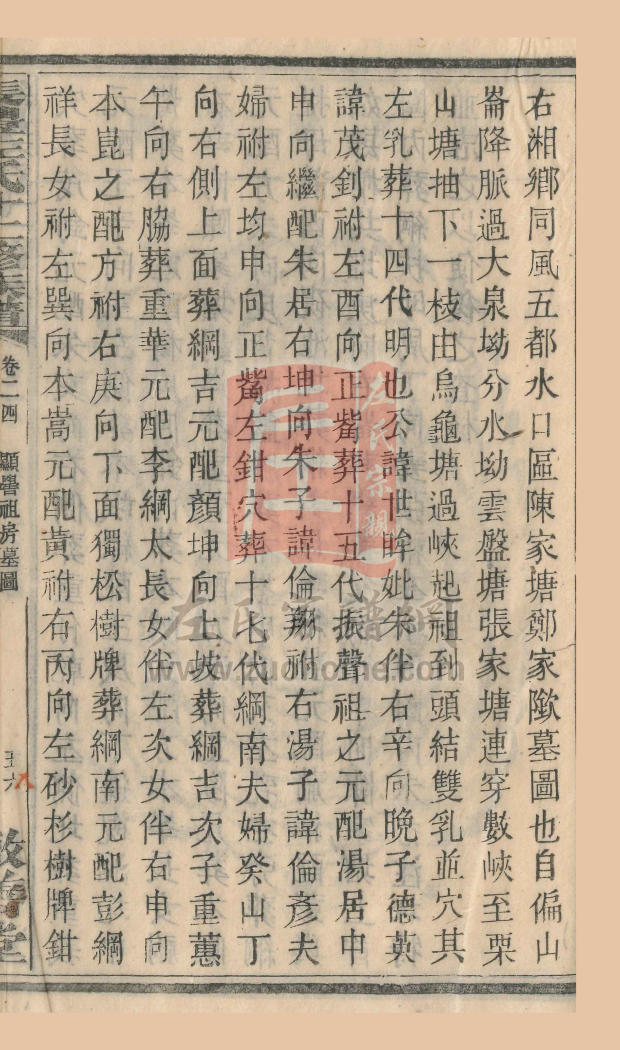 右湘鄉同風五都水口區陳家塘鄭家墩墓圖也自偏山
崙降脈過大泉坳分水坳雲盤塘張家塘連穿數峽至栗
山塘抽下一枝由烏龜塘過峽起祖到頭結雙乳並穴其
左乳葬十四代明也公諱世眸妣朱伴右辛向晚子德英
諱茂釗祔左酉向正觜葬十五代振聲祖之元配湯居中
申向繼配朱居右坤向朱子諱倫翔祔右湯子諱倫彥夫
婦祔左均申向正觜左鉗穴葬十七代綱南夫婦癸山丁
向右側上面葬綱吉元配顏坤向上坡葬綱吉次子重蕙
午向右脇葬重華元配李綱太長女伴左次女伴右申向
本崑之配方祔右庚向下面獨松樹牌葬綱南元配彭綱
祥長女祔左巽向本嵩元配黃祔右丙向左砂杉樹牌鉗
卷二四 顯譽祖房墓圖
五六
敦倫堂
左氏宗親
www.zuohome.com